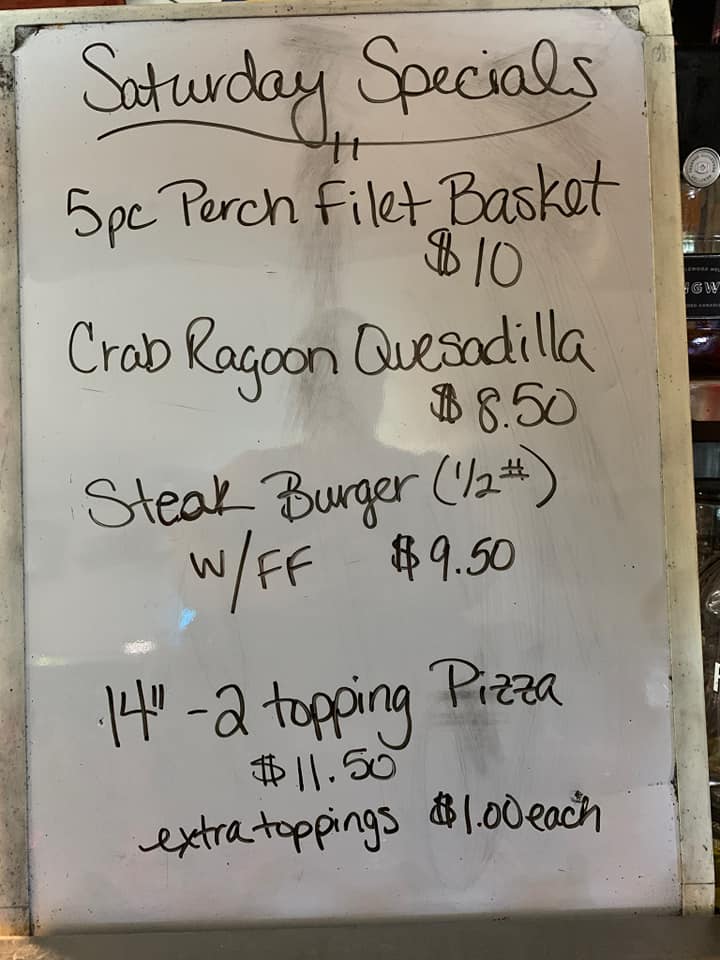 Saturday Specials
5pc Perch Filet Basket
$10
Crab Ragoon Quesadilla
$8.50
Steak Burger (1/2#)
W/FF $9.50
14" - 2 topping Pizza
$11.50
extra toppings $1.00 each